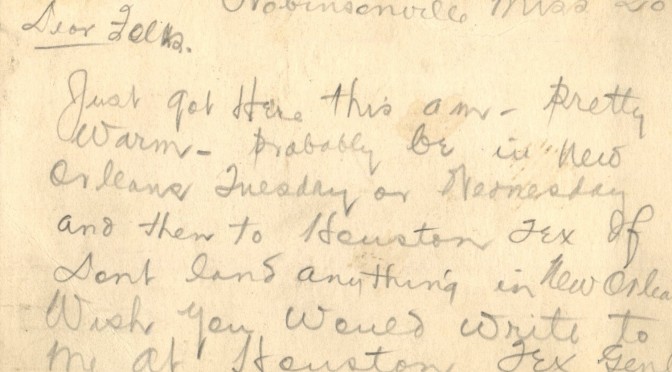 Robinsonville Miss 20
Dear Folks.
Just got Here this am - Pretty
Warm - Probably be in New
Orleans Tuesday or Wednesday
and then to Houston Tex If
Dont land anything in New Orlea
Wish you Would write to
me at Houston Tex Gen